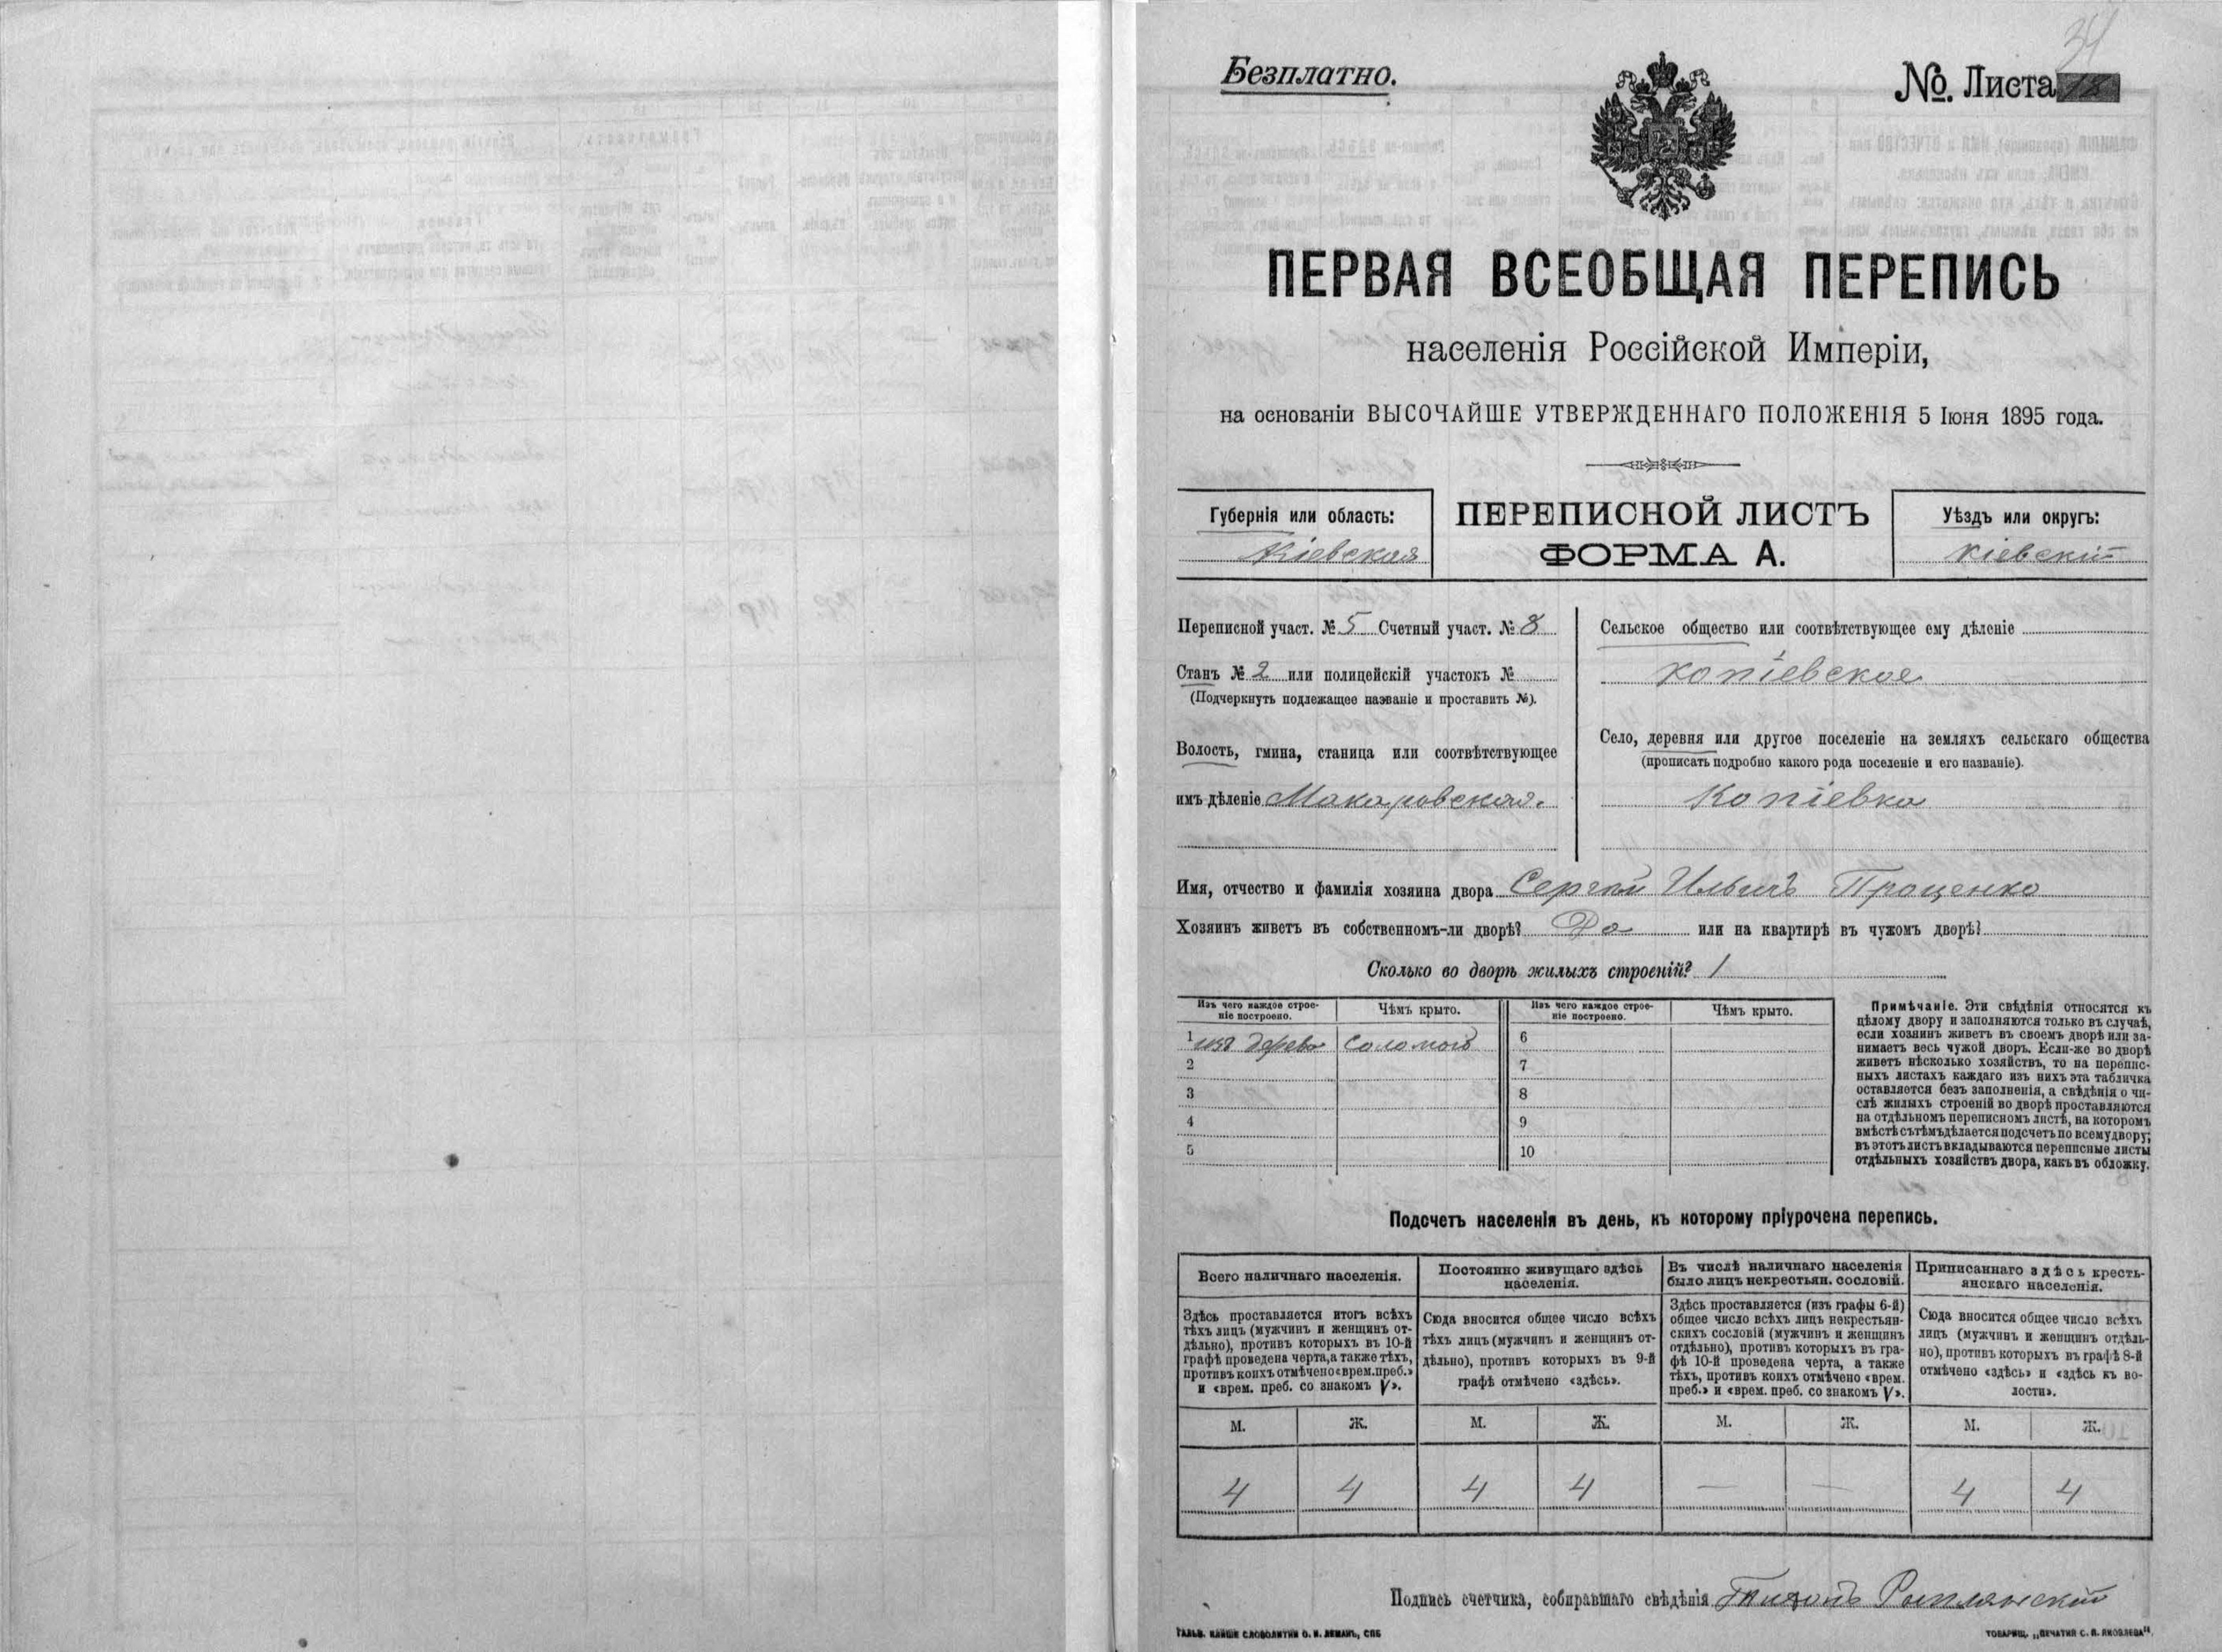 34
Безплатно.
№. Листа 18
ПЕРВАЯ ВСЕОБЩАЯ ПЕРЕПИСЬ
населенія Россійской Имперіи,
на основаніи ВЫСОЧАЙШЕ УТВЕРЖДЕННАГО ПОЛОЖЕНІЯ 5 Іюня 1895 года.
Губернія или область:
Кіевская
ПЕРЕПИСНОЙ ЛИСТЪ
ФОРМА А.
Уѣздъ или округъ:
Кіевскій
Переписной участ. № 5 Счетный участ. № 8
Станъ № 2 или полицейскій участокъ №
(Подчеркнуть подлежащее названіе и проставить №).
Волость, гмина, станица или соотвѣтствующее
имъ дѣленіе Макаровская.
Сельское общество или соотвѣтствующее ему дѣленіе
Копіевское
Село, деревня или другое поселеніе на земляхъ сельскаго общества
(прописать подробно какого рода поселеніе и его названіе).
Копіевка
Имя, отчество и фамилія хозяина двора Сергѣй Ильичъ Проценко
Хозяинъ живетъ въ собственномъ-ли дворѣ? Да или на квартирѣ въ чужомъ дворѣ?
Сколько во дворѣ жилыхъ строеній? 1
Изъ чего каждое строе-
ніе построено.
Чѣмъ крыто.
Изъ чего каждое строе-
ніе построено.
Чѣмъ крыто.
1 изъ дерева соломой 6
2 7
3 8
4 9
5 10
Примѣчаніе. Эти свѣдѣнія относятся къ
цѣлому двору и заполняются только въ случаѣ,
если хозяинъ живетъ въ своемъ дворѣ или за-
нимаетъ весь чужой дворъ. Если-же во дворѣ
живетъ нѣсколько хозяйствъ, то на перепис-
ныхъ листахъ каждаго изъ нихъ эта табличка
оставляется безъ заполненія, а свѣдѣнія о чи-
слѣ жилыхъ строеній во дворѣ проставляются
на отдѣльномъ переписномъ листѣ, на которомъ
вмѣстѣ съ тѣмъ дѣлается подсчетъ по всему двору;
въ этотъ листъ вкладываются переписные листы
отдѣльныхъ хозяйствъ двора, какъ въ обложку.
Подсчетъ населенія въ день, къ которому пріурочена перепись.
Всего наличнаго населенія.
Здѣсь проставляется итогъ всѣхъ
тѣхъ лицъ (мужчинъ и женщинъ от-
дѣльно), противъ которыхъ въ 10-й
графѣ проведена черта, а также тѣхъ,
противъ коихъ отмѣчено «врем. преб.»
и «врем. преб. со знакомъ V».
Постоянно живущаго здѣсь
населенія.
Сюда вносится общее число всѣхъ
тѣхъ лицъ (мужчинъ и женщинъ от-
дѣльно), противъ которыхъ въ 9-й
графѣ отмѣчено «здѣсь».
Въ числѣ наличнаго населенія
было лицъ некрестьян. сословій.
Здѣсь проставляется (изъ графы 6-й)
общее число всѣхъ лицъ некрестьян-
скихъ сословій (мужчинъ и женщинъ
отдѣльно), противъ которыхъ въ гра-
фѣ 10-й проведена черта, а также
тѣхъ, противъ коихъ отмѣчено «врем.
преб.» и «врем. преб. со знакомъ V».
Приписаннаго здѣсь кресть-
янскаго населенія.
Сюда вносится общее число всѣхъ
лицъ (мужчинъ и женщинъ отдѣль-
но), противъ которыхъ въ графѣ 8-й
отмѣчено «здѣсь» и «здѣсь къ во-
лости».
М. Ж. М. Ж. М. Ж. М. Ж.
4 4 4 4 — — 4 4
Подпись счетчика, собиравшаго свѣдѣнія
ГАЛЬВ. КЛИШЕ СЛОВОЛИТНИ О. И. ЛЕМАНЪ, СПБ
ТОВАРИЩ. „ПЕЧАТНЯ С. П. ЯКОВЛЕВА".